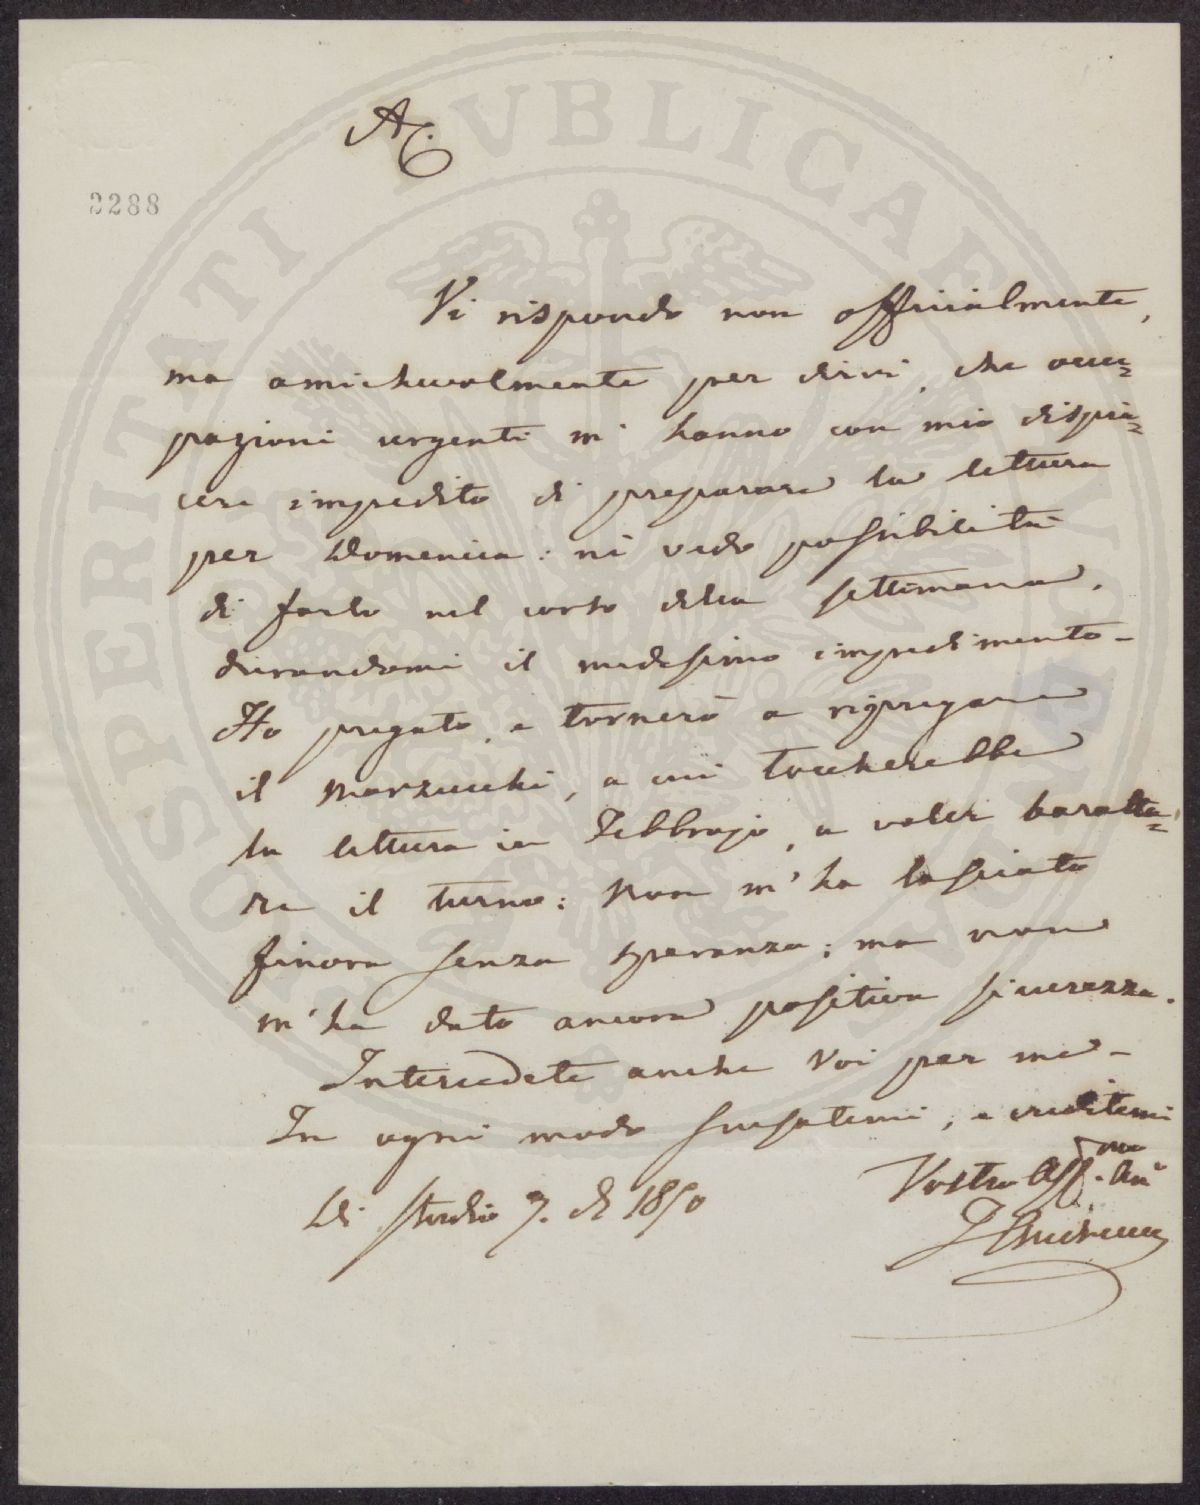 A. C.
2288
Vi rispondo non officialmente,
ma amichevolmente per dirvi, che occu=
pazioni urgenti m' hanno con mio dispia=
cere impedito di preparare la lettura
per Domenica: né vedo possibilità
di farlo nel corso della settimana,
durandomi il medesimo impedimento -
Ho pregato, e tornerò a ripregare
il Marzucchi, a cui toccherebbe
la lettura in Febbrajo, a voler baratta=
re il turno: Non m' ha lasciato
finora senza speranza; ma non
m' ha dato ancora positiva sicurezza.
Intercedete anche Voi per me -
In ogni modo scusatemi, e creditemi
Di Studio 7. di 1850
Vostro Aff.mo Am